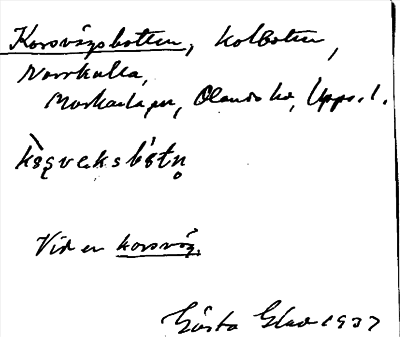 Korsvägsbotten, Kolbotten,
Norrkulla,
Morkarla sn, Olands hd, Upps. l.
Vid en korsväg.
Gösta Glad 1937